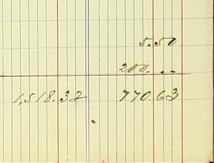 5.50
200. --
1,518.32 770.63